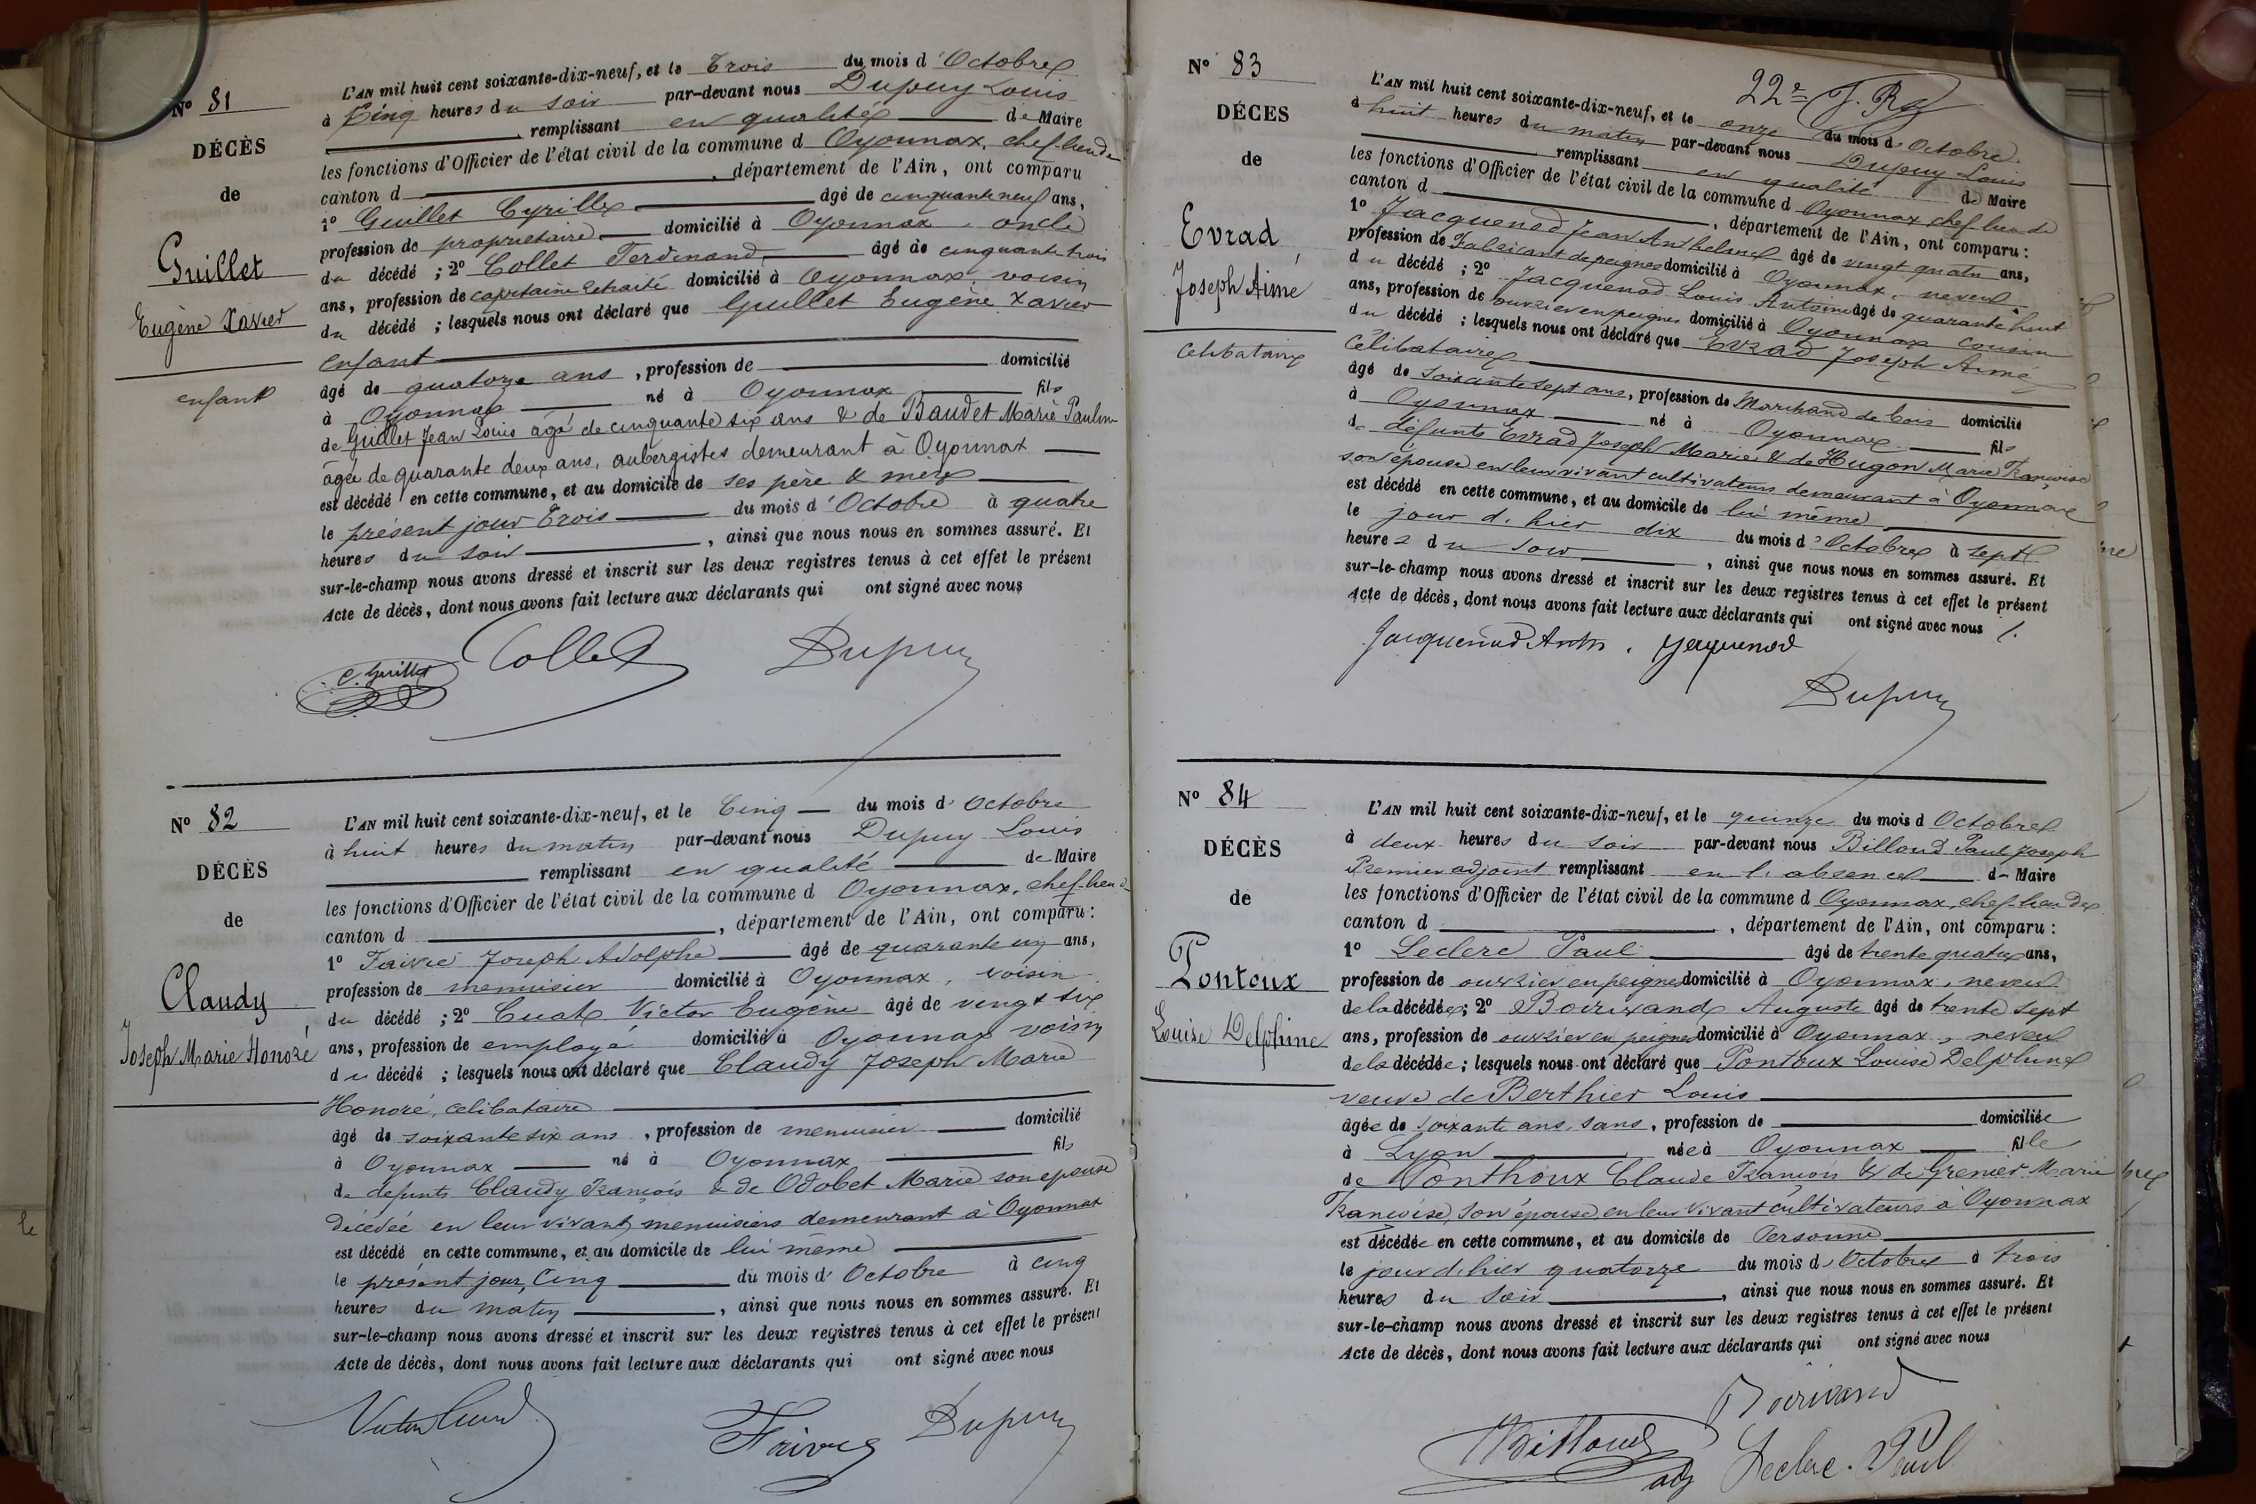 N° 81
DÉCÈS
de
Guillet
Eugène Xavier
enfant
L'AN mil huit cent soixante-dix-neuf, et le Trois du mois d'Octobre
à Cinq heures du soir par-devant nous Dupuy Louis
remplissant en qualité de Maire
les fonctions d'Officier de l'état civil de la commune d Oyonnax, chef-lieu de
canton d , département de l'Ain, ont comparu
1° Guillet Cyrille âgé de cinquante neuf ans,
profession de propriétaire domicilié à Oyonnax, oncle
du décédé ; 2° Collet Ferdinand, âgé de cinquante trois
ans, profession de capitaine retraité domicilié à Oyonnax, voisin
du décédé ; lesquels nous ont déclaré que Guillet Eugène Xavier
enfant
âgé de quatorze ans , profession de domicilié
à Oyonnax né à Oyonnax fils
de Guillet Jean Louis âgé de cinquante six ans & de Baudet Marie Pauline
âgée de quarante deux ans, aubergistes demeurant à Oyonnax
est décédé en cette commune, et au domicile de ses père & mère
le présent jour Trois du mois d'Octobre à quatre
heures du soir , ainsi que nous nous en sommes assuré. Et
sur-le-champ nous avons dressé et inscrit sur les deux registres tenus à cet effet le présent
Acte de décès, dont nous avons fait lecture aux déclarants qui ont signé avec nous
C. Guillet Collet Dupuy
N° 82
DÉCÈS
de
Claudy
Joseph Marie Honoré
L'AN mil huit cent soixante-dix-neuf, et le Cinq du mois d'Octobre
à huit heures du matin par-devant nous Dupuy Louis
remplissant en qualité de Maire
les fonctions d'Officier de l'état civil de la commune d Oyonnax, chef-lieu d
canton d , département de l'Ain, ont comparu :
1° Faivre Joseph Adolphe âgé de quarante un ans,
profession de menuisier domicilié à Oyonnax, voisin
du décédé ; 2° Victor Eugène âgé de vingt six
ans, profession de employé domicilié à Oyonnax voisin
du décédé ; lesquels nous ont déclaré que Claudy Joseph Marie
Honoré, célibataire
âgé de soixante six ans , profession de menuisier domicilié
à Oyonnax né à Oyonnax fils
de défunts Claudy François & de Odobet Marie son épouse
décédée en leur vivant menuisiers demeurant à Oyonnax
est décédé en cette commune, et au domicile de lui même
le présent jour, Cinq du mois d'Octobre à cinq
heures du matin , ainsi que nous nous en sommes assuré. Et
sur-le-champ nous avons dressé et inscrit sur les deux registres tenus à cet effet le présent
Acte de décès, dont nous avons fait lecture aux déclarants qui ont signé avec nous
Victor Faivre Dupuy
22e
N° 83
DÉCÈS
de
Evrad
Joseph Aimé
célibataire
L'AN mil huit cent soixante-dix-neuf, et le onze du mois d'Octobre
à huit heures du matin par-devant nous Dupuy Louis
remplissant en qualité de Maire
les fonctions d'Officier de l'état civil de la commune d Oyonnax chef lieu de
canton d , département de l'Ain, ont comparu :
1° Jacquenod Jean Anthelme âgé de vingt quatre ans,
profession de Fabricant de peignes domicilié à Oyonnax, neveu
du décédé ; 2° Jacquenod Louis Antoine âgé de quarante huit
ans, profession de ouvrier en peignes domicilié à Oyonnax cousin
du décédé ; lesquels nous ont déclaré que Evrad Joseph Aimé
célibataire
âgé de soixante sept ans, profession de Marchand de bois domicilié
à Oyonnax né à Oyonnax fils
de défunts Evrad Joseph Marie & de Hugon Marie Françoise
son épouse en leur vivant cultivateurs demeurant à Oyonnax
est décédé en cette commune, et au domicile de lui même
le jour d'hier dix du mois d'Octobre à sept
heures du soir , ainsi que nous nous en sommes assuré. Et
sur-le-champ nous avons dressé et inscrit sur les deux registres tenus à cet effet le présent
Acte de décès, dont nous avons fait lecture aux déclarants qui ont signé avec nous
Jacquenod Anth. Jacquenod
Dupuy
N° 84
DÉCÈS
de
Pontoux
Louise Delphine
L'AN mil huit cent soixante-dix-neuf, et le quinze du mois d Octobre
à deux heures du soir par-devant nous Billoud Paul Joseph
Premier adjoint remplissant en l'absence de Maire
les fonctions d'Officier de l'état civil de la commune d Oyonnax, chef-lieu de
canton d , département de l'Ain, ont comparu :
1° Leclerc Paul âgé de trente quatre ans,
profession de ouvrier en peignes domicilié à Oyonnax, neveu
de la décédée; 2° Boirivand Auguste âgé de trente sept
ans, profession de ouvrier en peignes domicilié à Oyonnax, neveu
de la décédée; lesquels nous ont déclaré que Pontoux Louise Delphine
veuve de Berthier Louis
âgée de soixante ans, sans , profession de domiciliée
à Lyon née à Oyonnax fille
de Ponthoux Claude François & de Grenier Marie
Françoise, son épouse, en leur vivant cultivateurs à Oyonnax
est décédée en cette commune, et au domicile de Personne
le jour d'hier quatorze du mois d'Octobre à trois
heures du soir , ainsi que nous nous en sommes assuré. Et
sur-le-champ nous avons dressé et inscrit sur les deux registres tenus à cet effet le présent
Acte de décès, dont nous avons fait lecture aux déclarants qui ont signé avec nous
Boirivand
Billoud adj Leclerc Paul